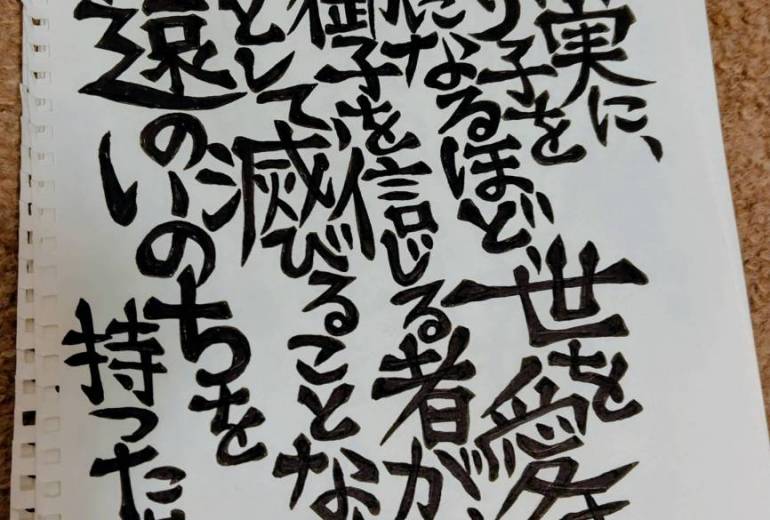 実に、
り子を
になるほど
世を愛
御子を信じる者が
として滅びることな
遠のいのちを
持つた